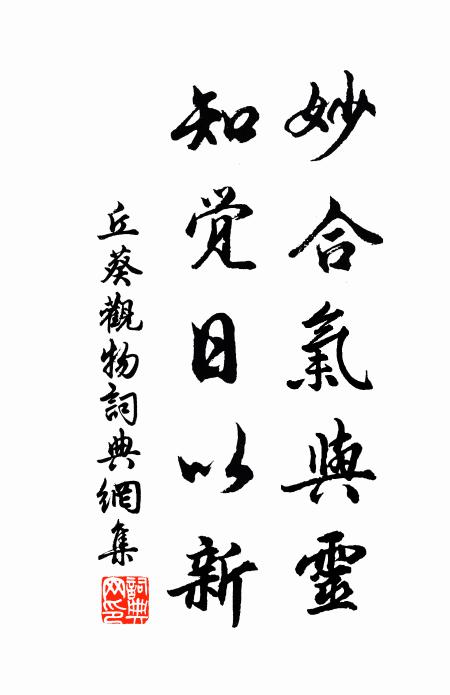 妙合氣與靈
知覚日以新
丘葵觀物詞典網集
詞典網印